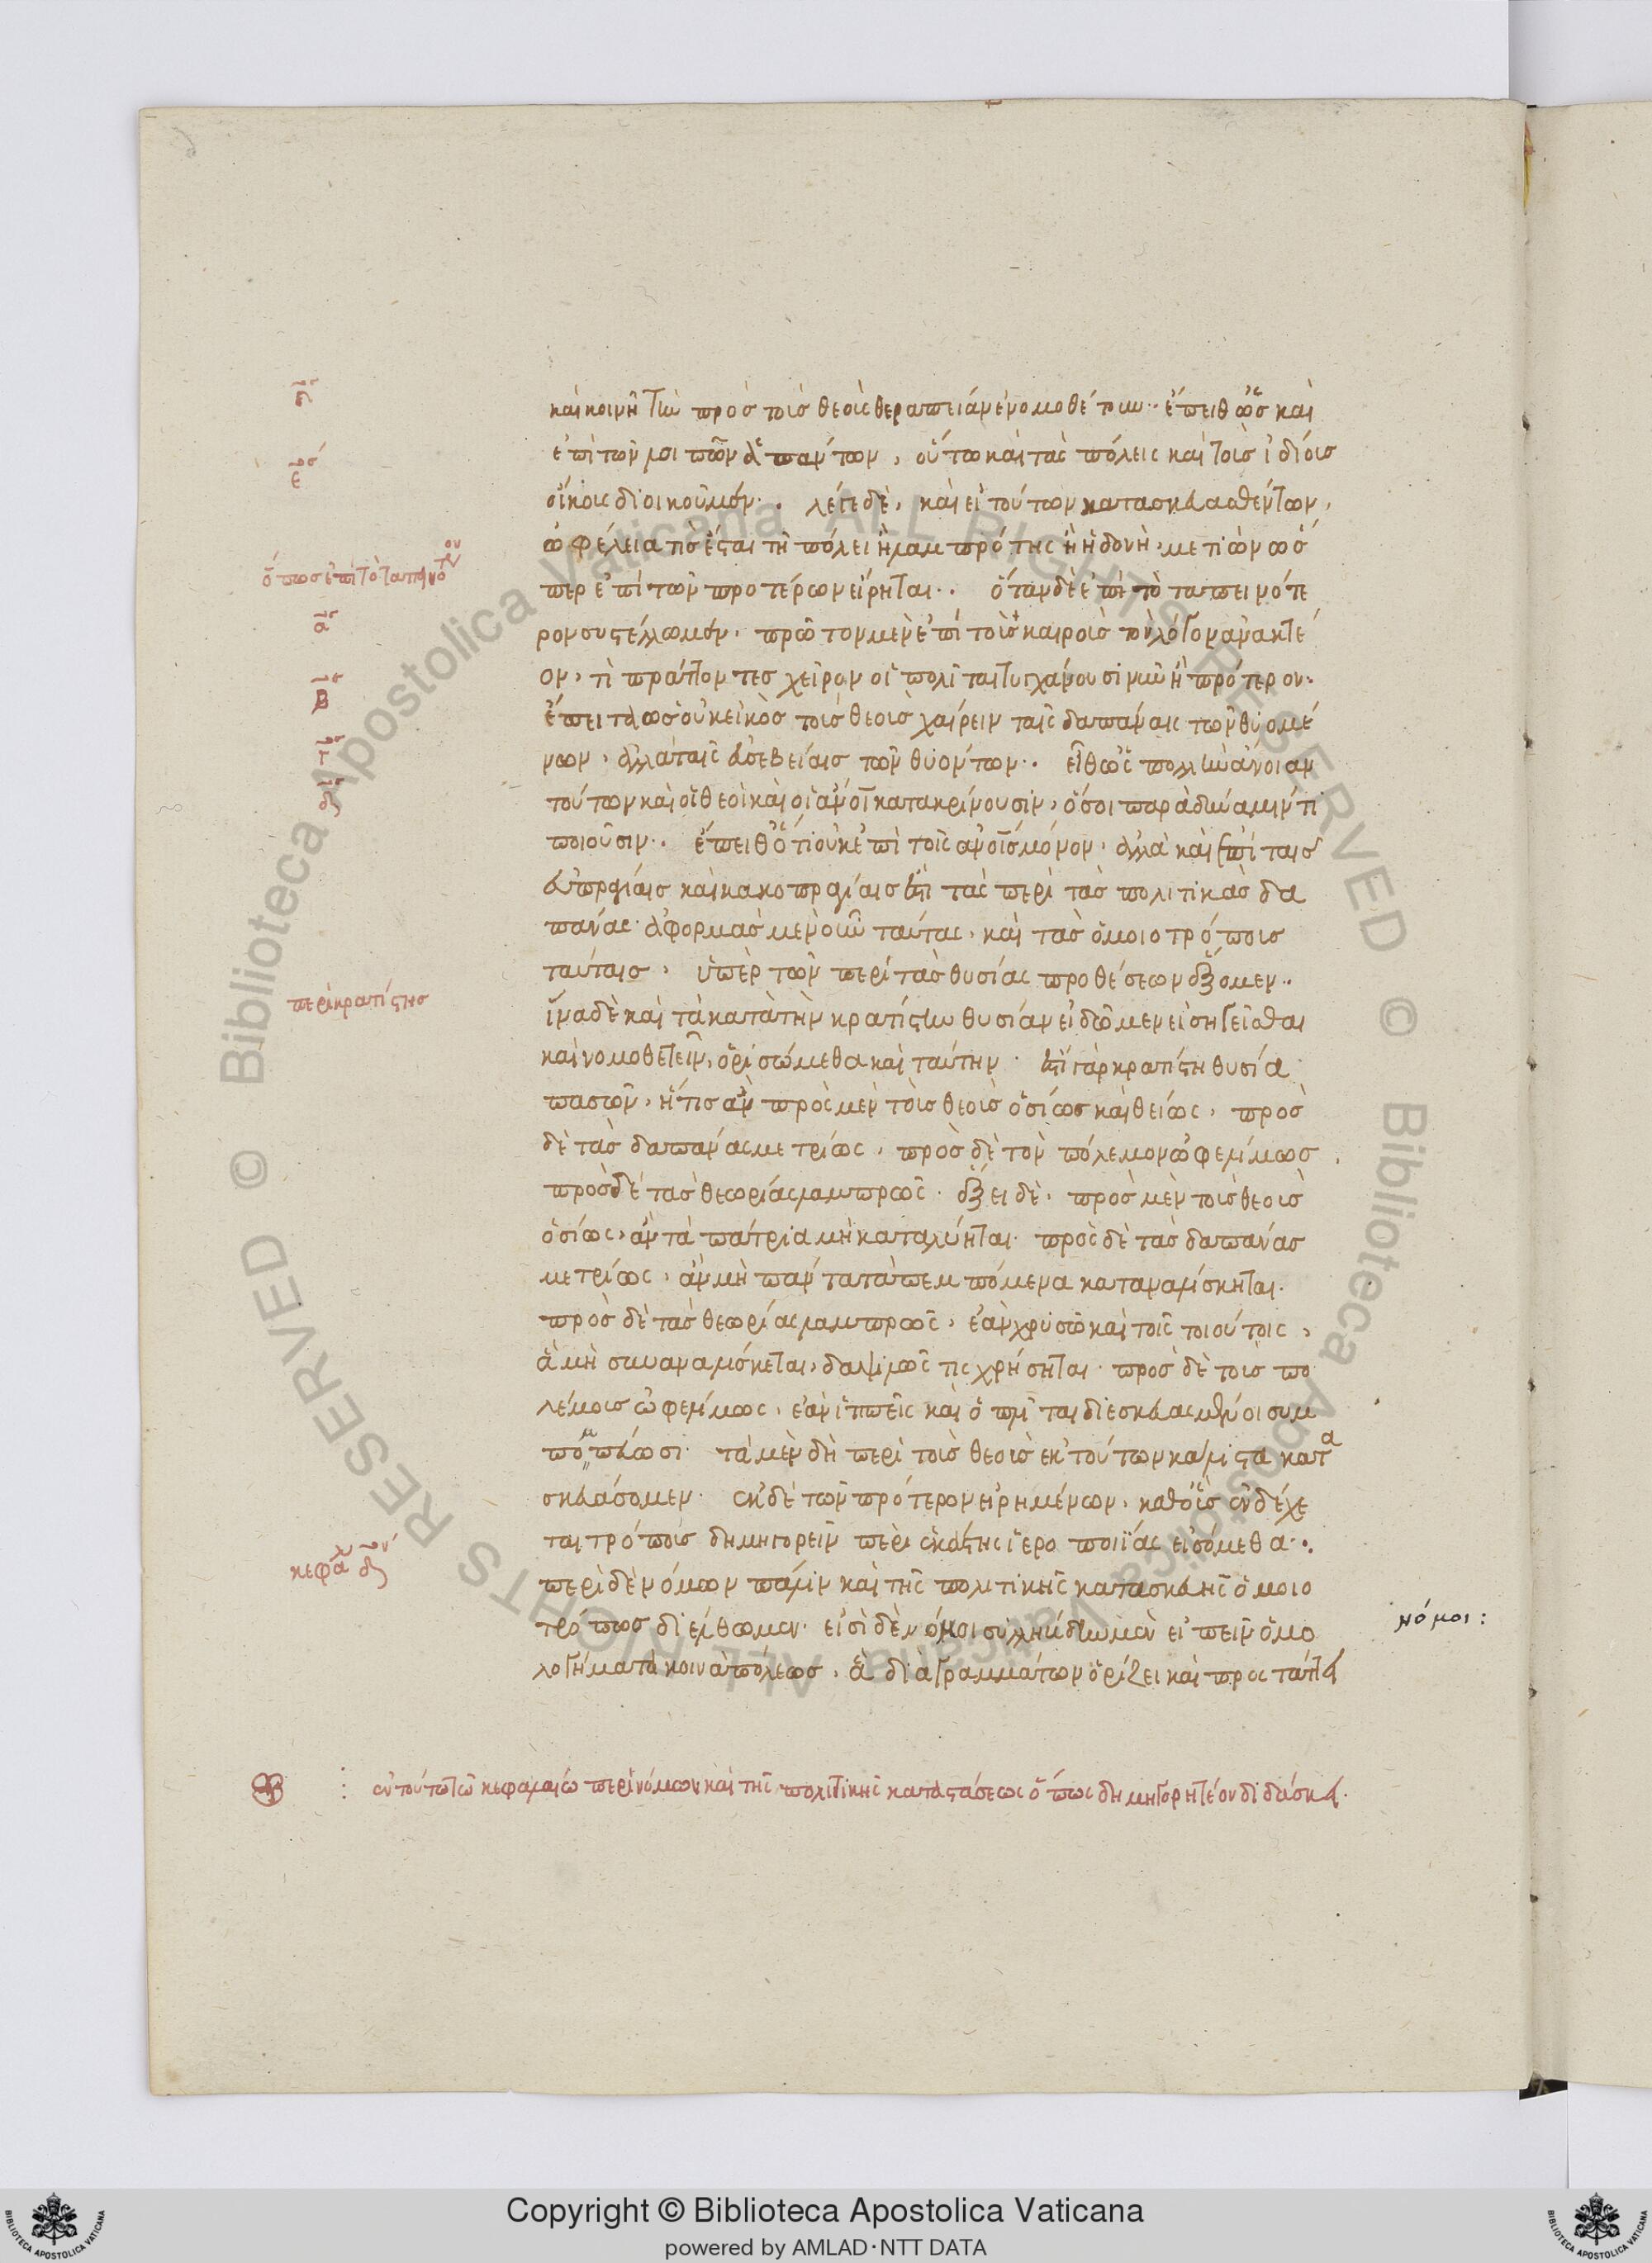 καὶ κοινῇ τὴν πρὸς τοὺς θεοὺς θεραπείαν ἐνομοθέτουν· ἔπειθ ὡς καὶ
ἐπὶ τῶν λοιπῶν ἁπάντων, οὕτω καὶ τὰς πόλεις καὶ τοὺς ἰδίους
οἴκους διοικοῦμεν·. λέγε δὲ, καὶ εἰ τούτων κατασκευασθέντων,
ὠφέλειά τις ἔσται τῇ πόλει ἢ λαμπρότης ἢ ἡδονὴ, μετιὼν ὥσ
περ ἐπὶ τῶν προτέρων εἴρηται·. ὅταν δὲ ἐπὶ τὸ ταπεινότε
ρον συστέλλωμεν, πρῶτον μὲν ἐπὶ τοὺς καιροὺς τὸν λόγον ἀνακτέ
ον, τί πράττοντες χεῖρον οἱ πολῖται τυγχάνουσι νῦν ἢ πρότερον·
ἔπειτα ὡς οὐκ εἰκὸς τοὺς θεοὺς χαίρειν ταῖς δαπάναις τῶν θυομέ
νων, ἀλλὰ ταῖς εὐσεβείαις τῶν θυόντων·. εἶθ ὡς πολλὴν ἄνοιαν
τούτων καὶ οἱ θεοὶ καὶ οἱ ἄνοι κατακρίνουσιν, ὅσοι παρὰ δύναμίν τι
ποιοῦσιν·. ἔπειθ ὅτι οὐκ ἐπὶ τοῖς ἀνοις μόνον, ἀλλὰ καὶ ἐπὶ ταῖς
εὐπραγίαις καὶ κακοπραγίαις ἐστὶ τὰς περὶ τὰς πολιτικὰς δα
πάνας· ἀφορμὰς μὲν οὖν ταύτας, καὶ τὰς ὁμοιοτρόπους
ταύταις, ὑπὲρ τῶν περὶ τὰς θυσίας προθέσεων ἕξομεν·.
ἵνα δὲ καὶ τὰ κατὰ τὴν κρατίστην θυσίαν εἰδῶμεν εἰσηγεῖσθαι
καὶ νομοθετεῖν, ὁρισώμεθα καὶ ταύτην· ἔστι γὰρ κρατίστη θυσία
πασῶν, ἥτις ἂν πρὸς μὲν τοὺς θεοὺς ὁσίως καὶ θείως, πρὸς
δὲ τὰς δαπάνας μετρίως, πρὸς δὲ τὸν πόλεμον ὠφελίμως,
πρὸς δὲ τὰς θεωρίας λαμπρῶς· ἕξει δὲ, πρὸς μὲν τοὺς θεοὺς
ὁσίως, ἂν τὰ πάτρια μὴ καταλύηται· πρὸς δὲ τὰς δαπάνας
μετρίως, ἂν μὴ πάντα τὰ πεμπόμενα καταναλίσκηται·
πρὸς δὲ τὰς θεωρίας λαμπρῶς, ἐὰν χρυσῶ καὶ τοῖς τοιούτοις,
ἃ μὴ συναναλίσκεται, δαψιλῶς τις χρήσηται· πρὸς δὲ τοὺς πο
λέμους ὠφελίμως, ἐὰν ἱππεῖς καὶ ὁπλῖται διεσκευασμένοι συμ
πομπεύωσι· τὰ μὲν δὴ περὶ τοὺς θεοὺς ἐκ τούτων κάλλιστα κατα
σκευάσομεν· ἐκ δὲ τῶν πρότερον εἰρημένων, καθ οὓς ἐνδέχε
ται τρόπους δημηγορεῖν περὶ ἑκάστης ἱεροποιΐας εἰσόμεθα·.
περὶ δὲ νόμων πάλιν καὶ τῆς πολιτικῆς κατασκευῆς ὁμοιο
τρόπως διέλθωμεν· εἰσὶ δὲ νόμοι συλλήβδην μὲν εἰπεῖν ὁμο
λογήματα κοινὰ πόλεως, ἃ διὰ γραμμάτων ὁρίζει καὶ προστάττει
δος
εος
ὅπως ἐπὶ τὸ ταπεινότερον
αος
βος
γος
δος
περὶ κρατίστης
κεφάλ δον
νόμοι:
ἐν τούτω τῶ κεφαλαίω περὶ νόμων καὶ τῆς πολιτικῆς καταστάσεως ὅπως δημηγορητέον διδάσκει·
Copyright © Biblioteca Apostolica Vaticana
powered by AMLAD·NTT DATA
© Biblioteca Apostolica Vaticana ALL RIGHTS RESERVED
© Biblioteca Apostolica Vaticana ALL RIGHTS RESERVED
BIBLIOTECA APOSTOLICA VATICANA
BIBLIOTECA APOSTOLICA VATICANA